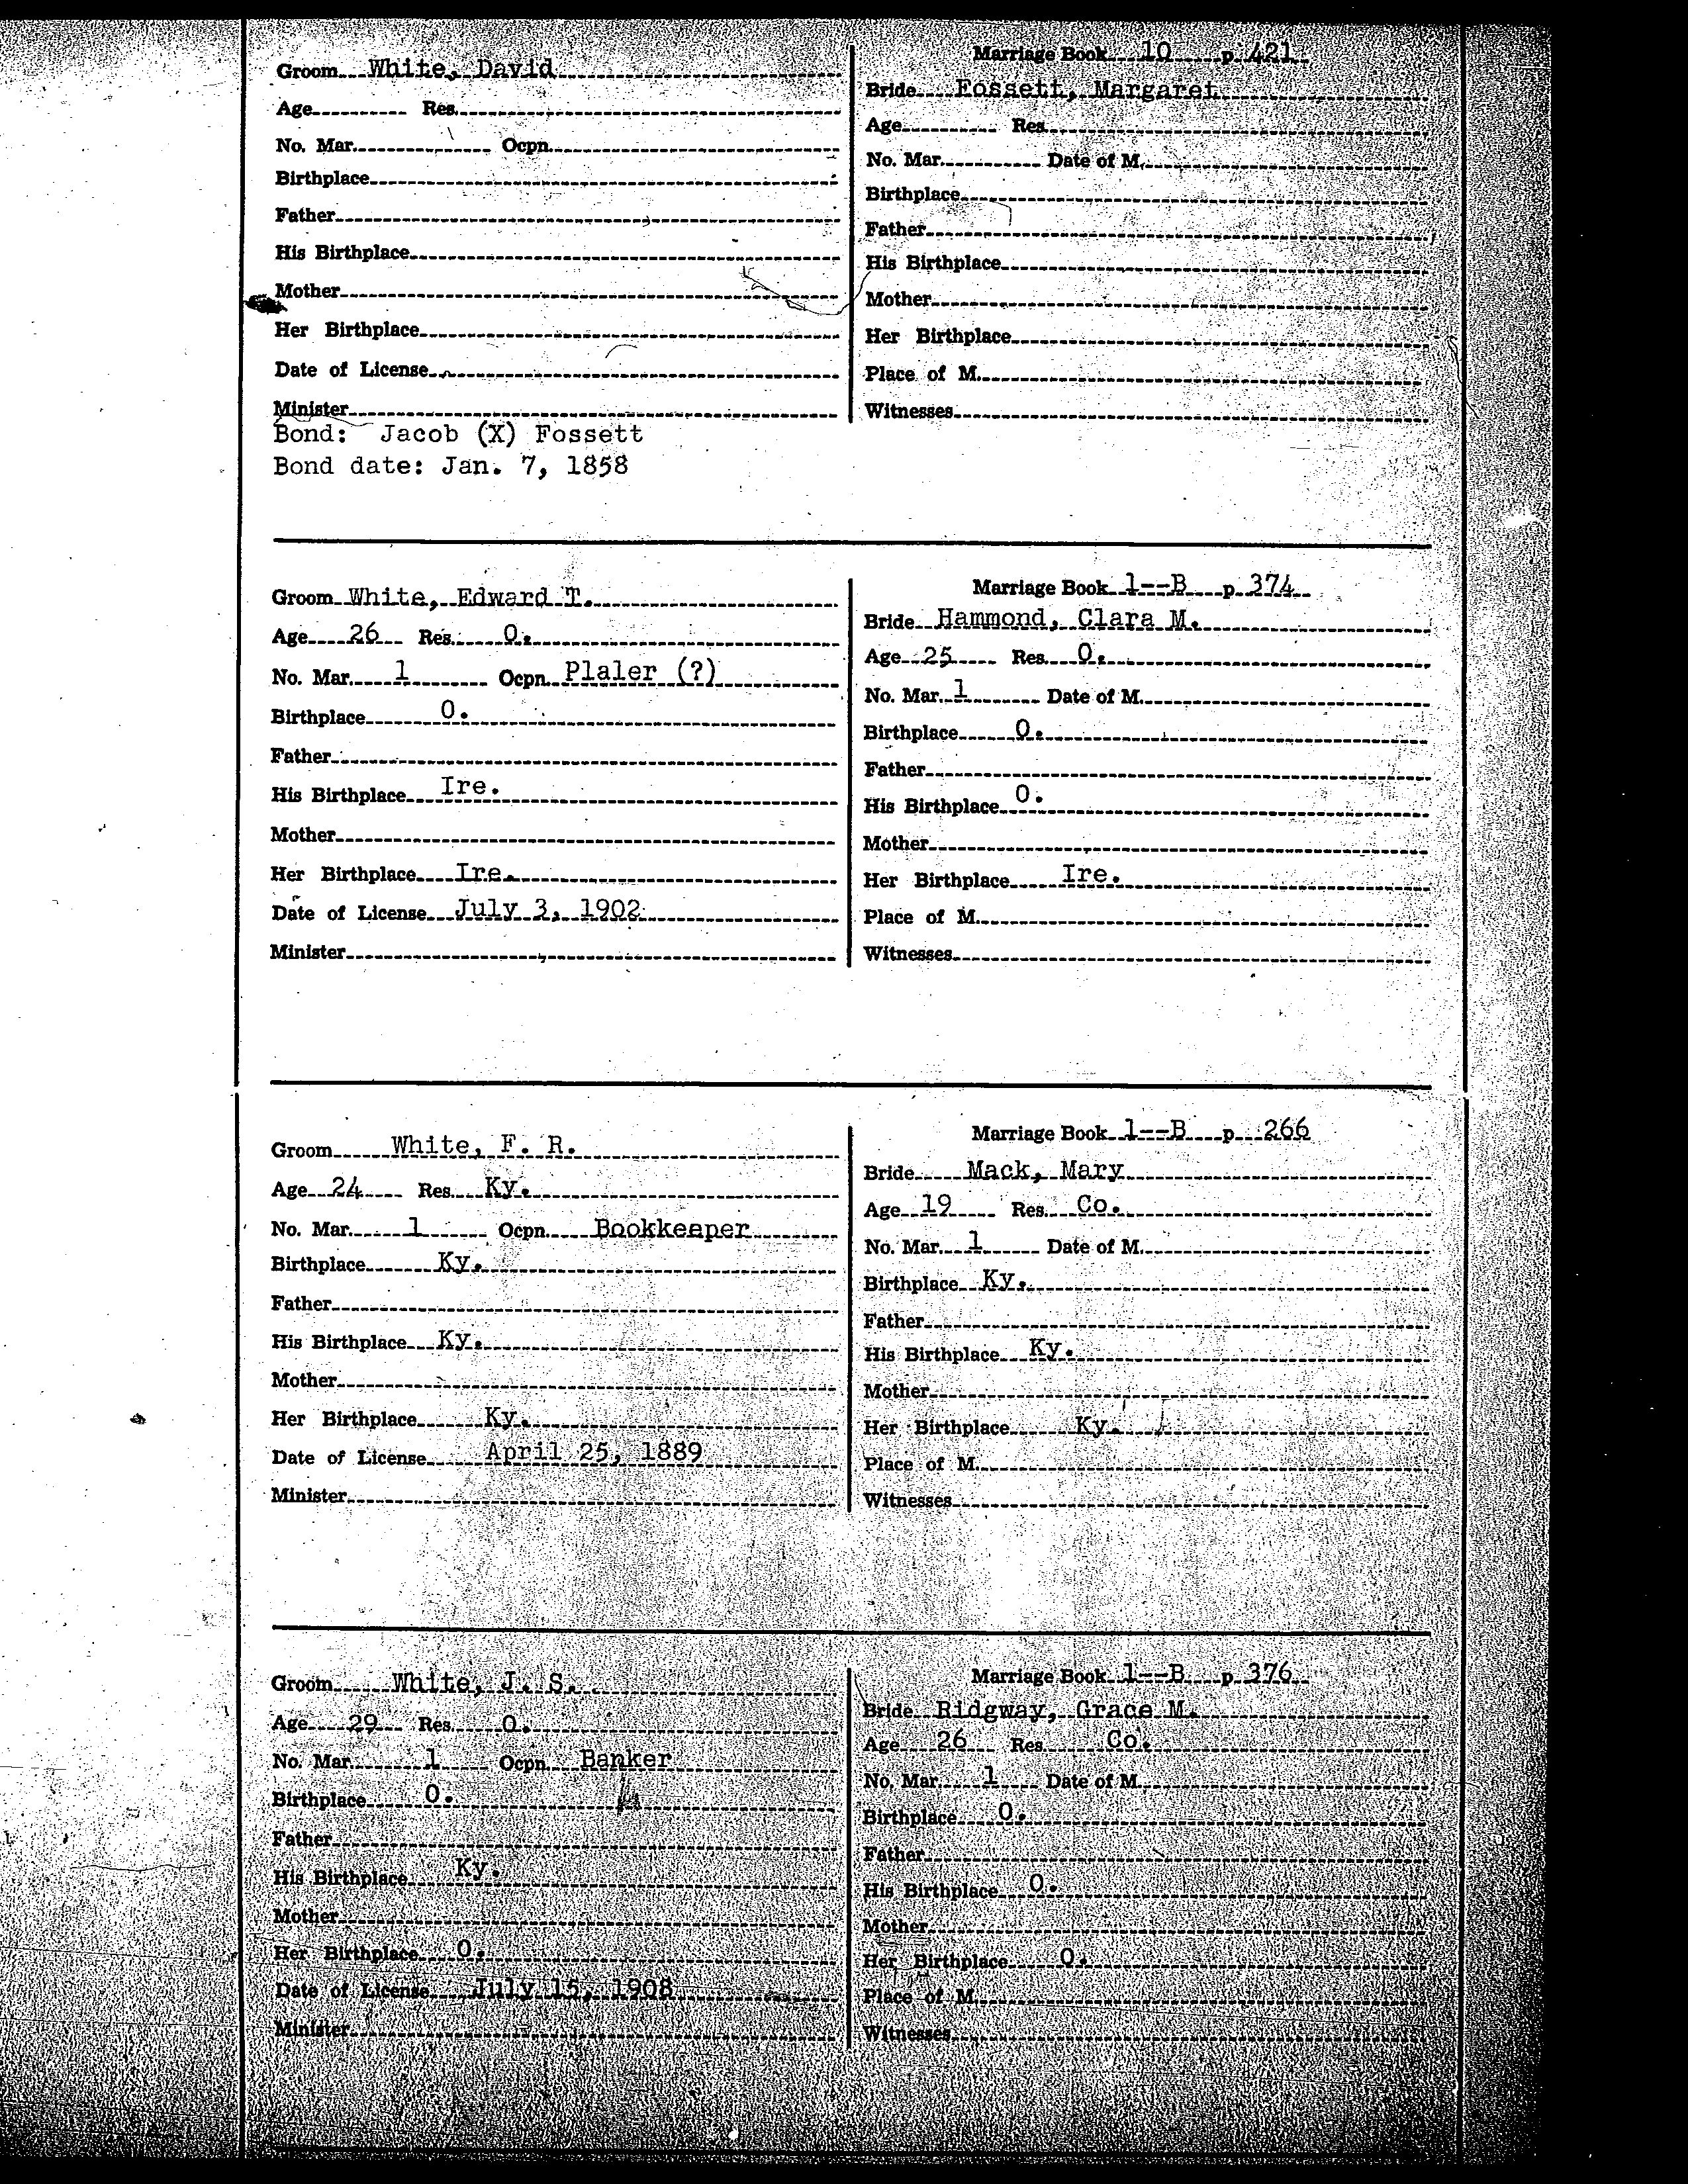 Groom White, David
Age Res.
No. Mar. Ocpn.
Birthplace
Father
His Birthplace
Mother
Her Birthplace
Date of License
Minister
Bond: Jacob (X) Fossett
Bond date: Jan. 7, 1858
Marriage Book 10 p. 421
Bride Fossett, Margaret
Age Res.
No. Mar. Date of M.
Birthplace
Father
His Birthplace
Mother
Her Birthplace
Place of M.
Witnesses
Groom White, Edward T.
Age 26 Res. O.
No. Mar. 1 Ocpn. Plaler (?)
Birthplace O.
Father
His Birthplace Ire.
Mother
Her Birthplace Ire.
Date of License July 3, 1902
Minister
Marriage Book 1--B p. 374
Bride Hammond, Clara M.
Age 25 Res. O.
No. Mar. 1 Date of M.
Birthplace O.
Father
His Birthplace O.
Mother
Her Birthplace Ire.
Place of M.
Witnesses
Groom White, F. R.
Age 24 Res. Ky.
No. Mar. 1 Ocpn. Bookkeeper
Birthplace Ky.
Father
His Birthplace Ky.
Mother
Her Birthplace Ky.
Date of License April 25, 1889
Minister
Marriage Book 1--B p. 266
Bride Mack, Mary
Age 19 Res. Co.
No. Mar. 1 Date of M.
Birthplace Ky.
Father
His Birthplace Ky.
Mother
Her Birthplace Ky.
Place of M.
Witnesses
Groom White, J. S.
Age 29 Res. O.
No. Mar. 1 Ocpn. Banker
Birthplace O.
Father
His Birthplace Ky.
Mother
Her Birthplace O.
Date of License July 15, 1908
Minister
Marriage Book 1--B p. 376
Bride Ridgway, Grace M.
Age 26 Res. Co.
No. Mar. 1 Date of M.
Birthplace O.
Father
His Birthplace O.
Mother
Her Birthplace O.
Place of M.
Witnesses